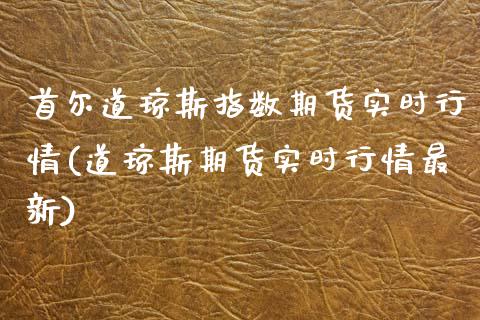 首尔道琼斯指数期货实时行
情(道琼斯期货实时行情最
新)